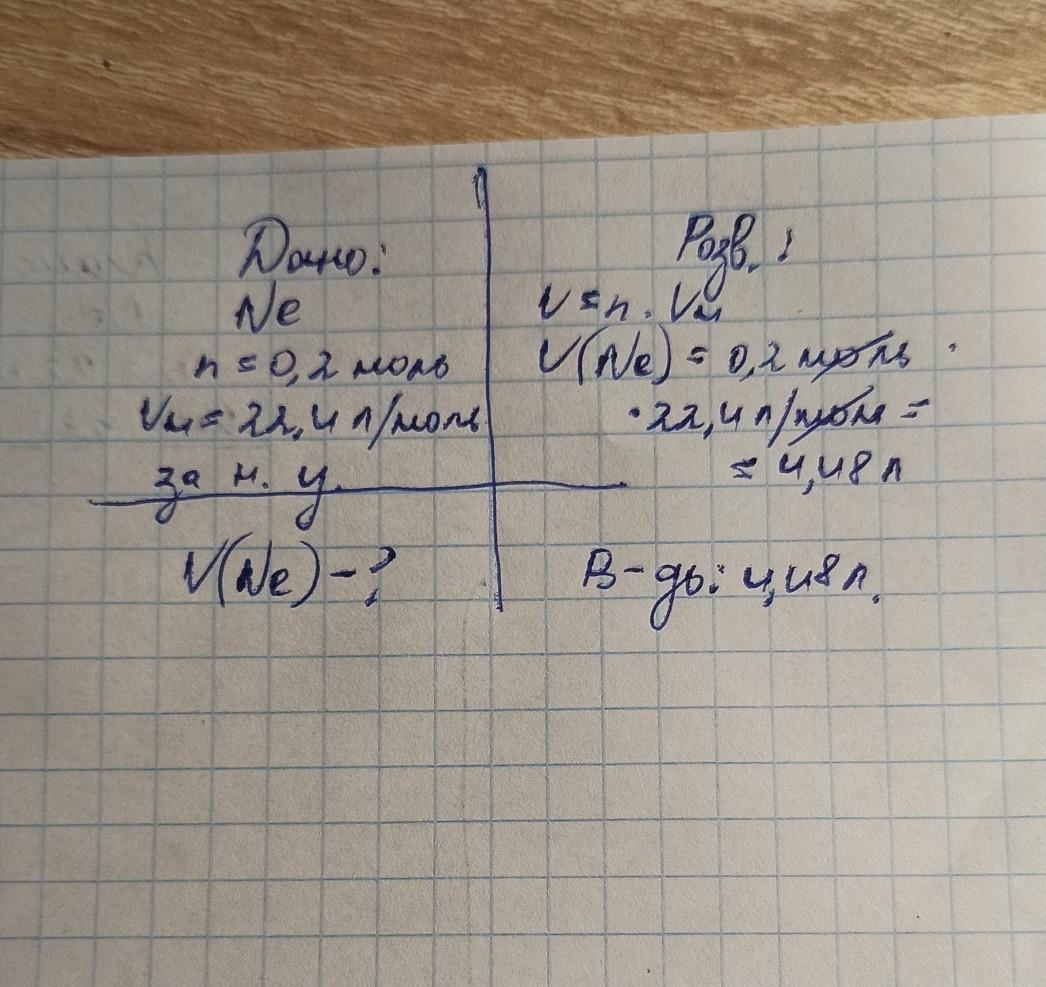 Дано:
Ne
n = 0,2 моль
Vм = 22,4 л/моль
за н. у.
V(Ne) - ?
Розв. :
V = n . Vм
V(Ne) = 0,2 моль ·
· 22,4 л/моль =
= 4,48 л
В-дь: 4,48 л.